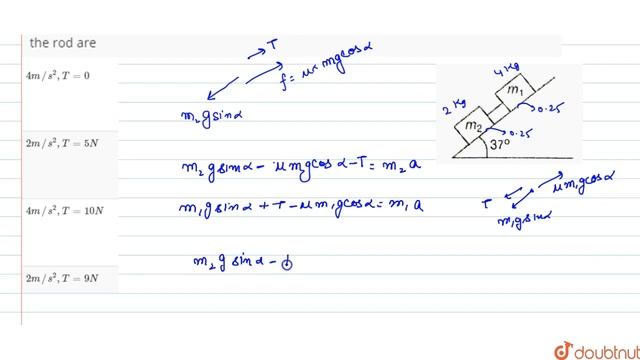 the rod are
4m/s², T = 0
2m/s², T = 5N
4m/s², T = 10N
2m/s², T = 9N
T
f = μ mgcosα
m₂gsinα
m₂gsinα - μm₂gcosα - T = m₂a
m₁gsinα + T - μm₁gcosα = m₁a
m₂gsinα -
4 kg
m₁
0.25
2 kg
m₂
0.25
37°
μm₁gcosα
T
m₁gsinα
doubtnut